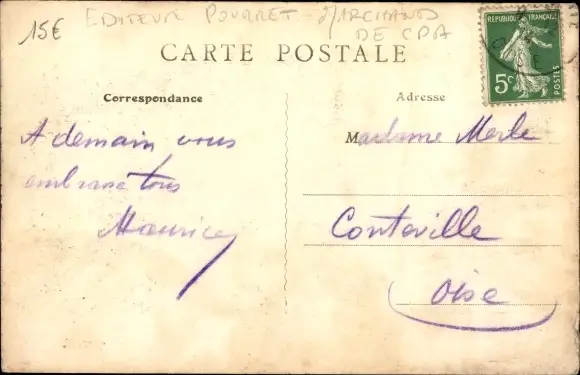 15€
EDITEUR POURRET - MARCHAND
DE CPA
CARTE POSTALE
REPUBLIQUE FRANÇAISE
5c
POSTES
Correspondance
Adresse
A demain vous
embrasse tous
Maurice
Madame Merle
Conteville
Oise